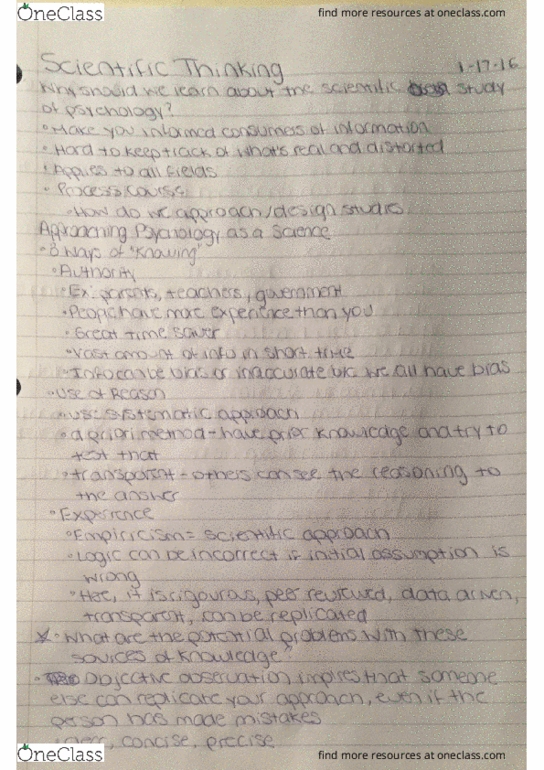 OneClass
find more resources at oneclass.com
Scientific Thinking 1-17-16
Why should we learn about the scientific study
of psychology?
• Make you informed consumers of information
• Hard to keep track of what's real and distorted
• Applies to all fields
• Process course
• How do we approach/design studies
Approaching Psychology as a Science
• 3 ways of "knowing"
• Authority
• Ex: parents, teachers, government
• People have more experience than you
• Great time saver
• Vast amount of info in short time
• Info can be bias or inaccurate b/c we all have bias
• Use of Reason
• use systematic approach
• a priori method - have prior knowledge and try to
test that
• transparent - others can see the reasoning to
the answer
• Experience
• Empiricism = scientific approach
• Logic can be incorrect if initial assumption is
wrong
• it is rigourous, peer reviewed, data driven,
transparent, can be replicated
• What are the potential problems with these
sources of knowledge
• Objective observation implies that someone
else can replicate your approach, even if the
person has made mistakes
concise, precise
OneClass
find more resources at oneclass.com